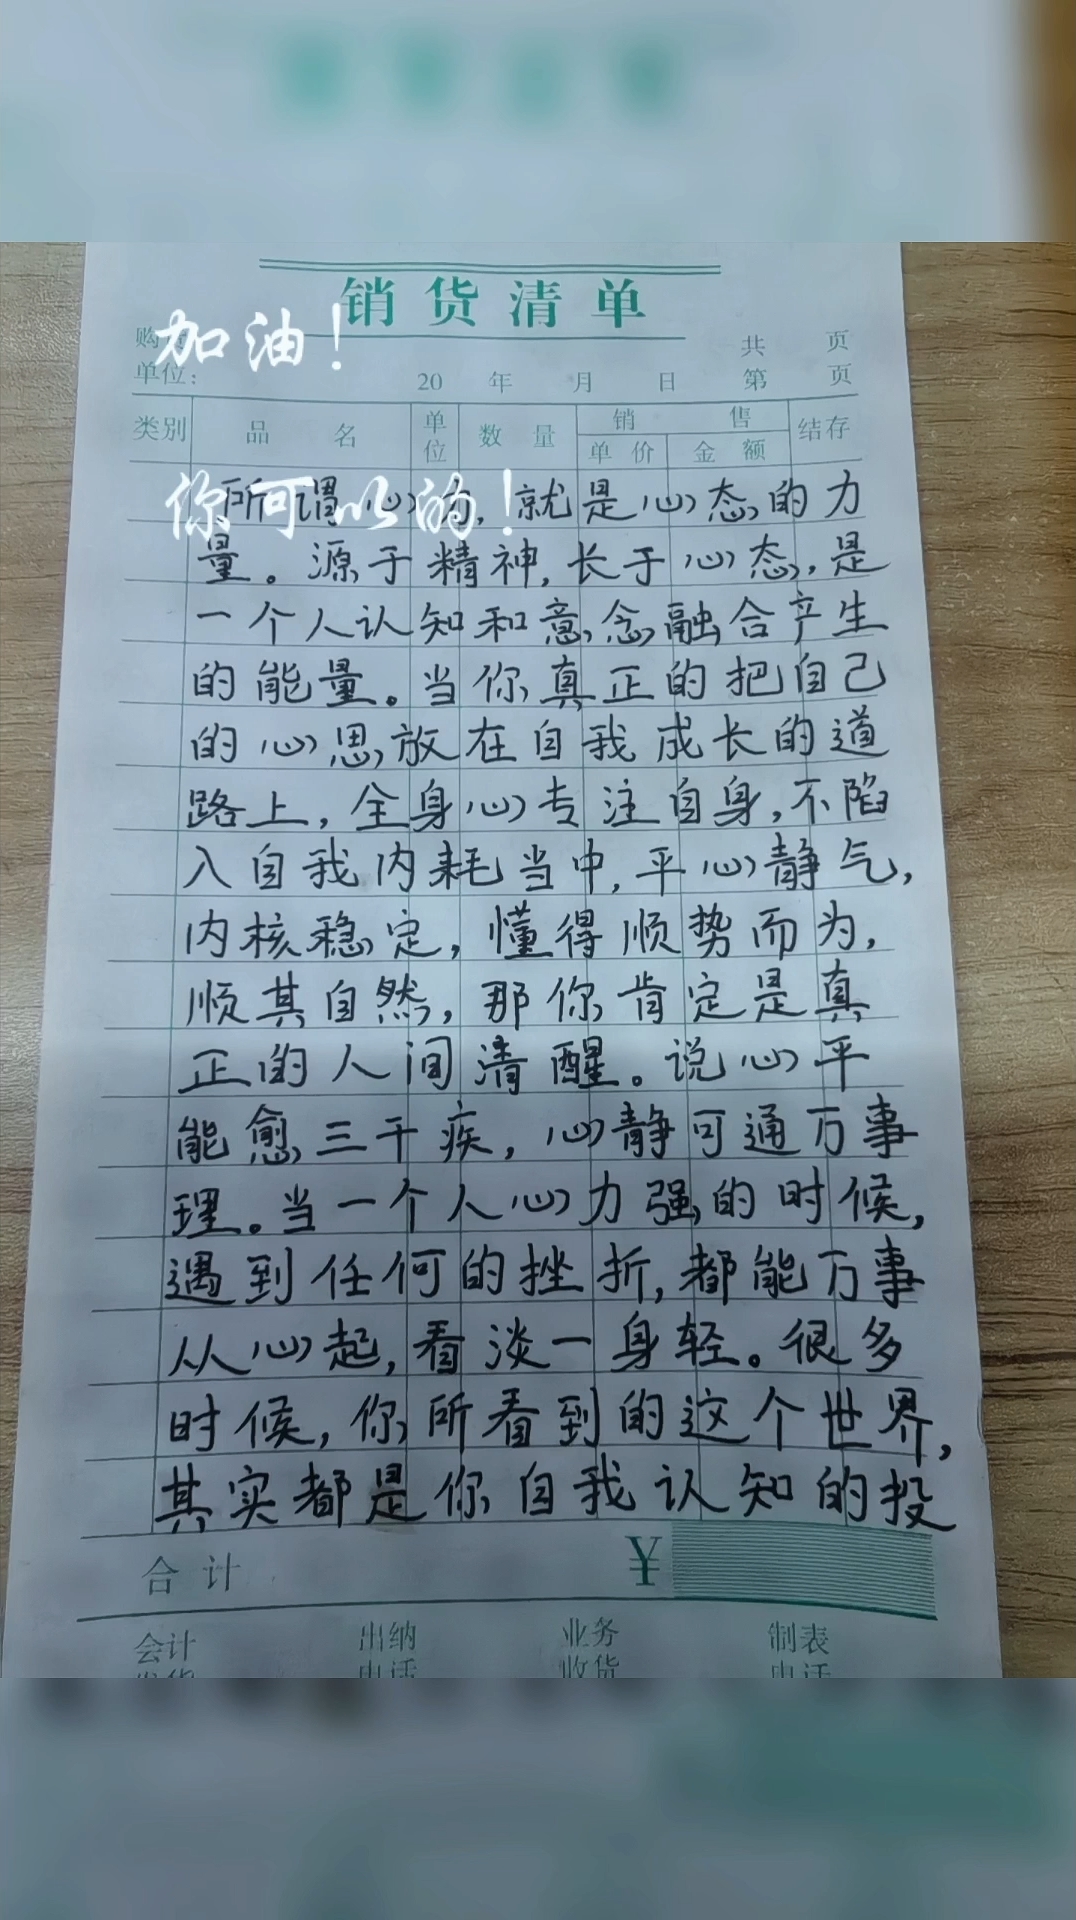 销货清单
加油！
购货
共 页
单位：
20 年 月 日 第 页
类别 品 名 单位 数 量 销 售 结存
单 价 金 额
你可以的！
所谓心力，就是心态的力
量。源于精神，长于心态，是
一个人认知和意念融合产生
的能量。当你真正的把自己
的心思放在自我成长的道
路上，全身心专注自身，不陷
入自我内耗当中，平心静气，
内核稳定，懂得顺势而为，
顺其自然，那你肯定是真
正的人间清醒。说心平
能愈三千疾，心静可通万事
理。当一个人心力强的时候，
遇到任何的挫折，都能万事
从心起，看淡一身轻。很多
时候，你所看到的这个世界，
其实都是你自我认知的投
合 计 ¥
会计 出纳 业务 制表
发货 电话 收货 电话